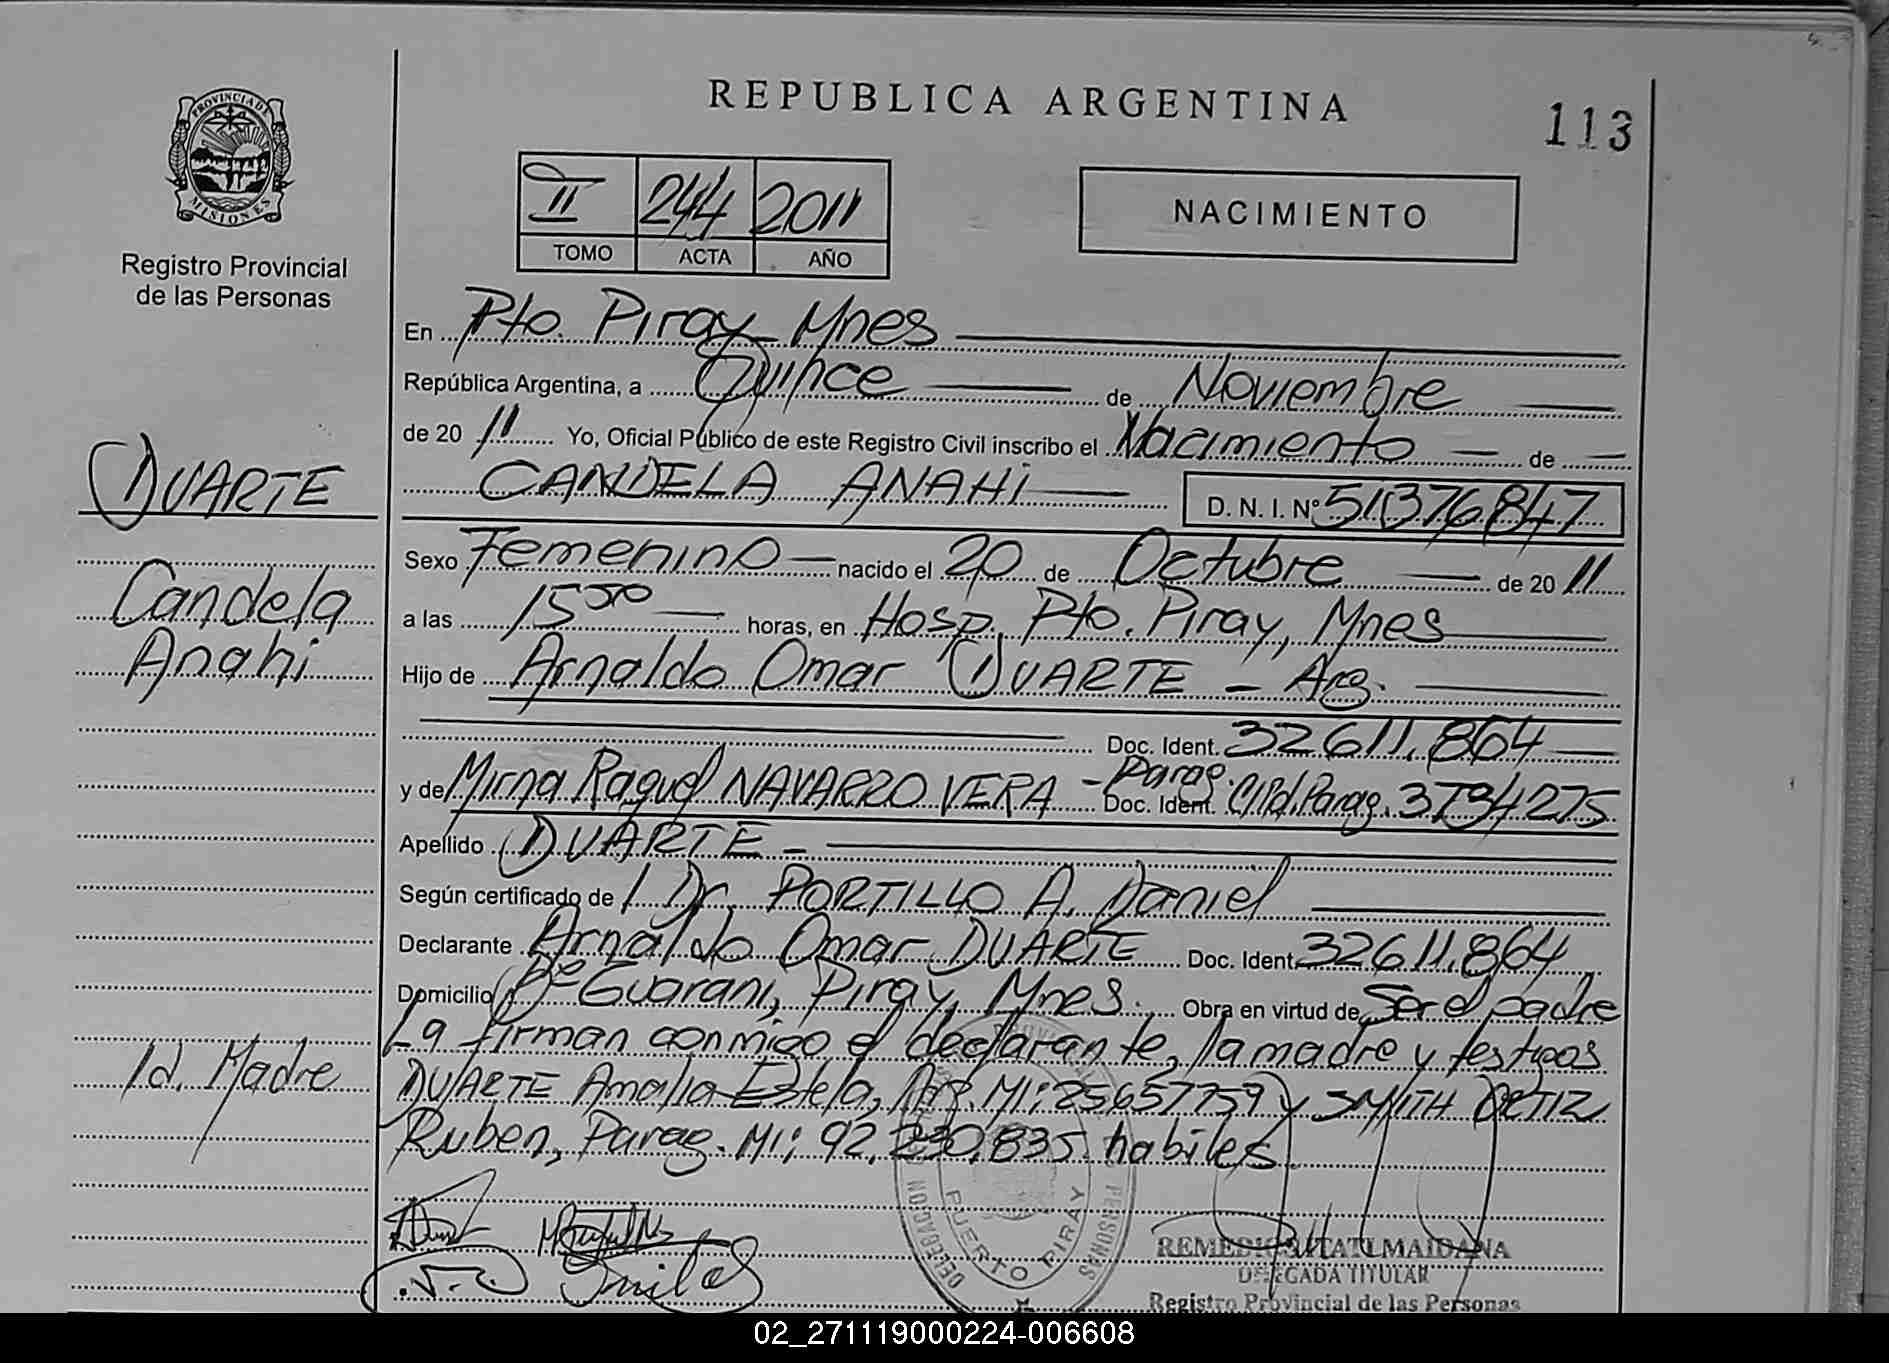 REPUBLICA ARGENTINA
113
PROVINCIA DE MISIONES
Registro Provincial
de las Personas
II 244 2011
TOMO ACTA AÑO
NACIMIENTO
En Pto. Piray Mnes
República Argentina, a Quince de Noviembre
de 20 11 Yo, Oficial Público de este Registro Civil inscribo el Nacimiento de
CANDELA ANAHI D. N. I. Nº 51376847
DUARTE
Candela
Anahi
Sexo Femenino nacido el 20 de Octubre de 20 11
a las 15 horas, en Hosp. Pto. Piray, Mnes
Hijo de Arnaldo Omar DUARTE - Arg.
Doc. Ident. 32611.864
y de Mirna Raquel NAVARRO VERA - Parag. Doc. Ident. C.I.Pd.Parag. 3734275
Apellido DUARTE -
Según certificado de Dr. PORTILLO A. Daniel
Declarante Arnaldo Omar DUARTE Doc. Ident. 32611.864
Domicilio Bº Guarani, Piray, Mnes. Obra en virtud de Ser el padre
La firman conmigo el declarante, la madre y testigos
DUARTE Amalia Estela, Arg. MI: 25657759 y SMITH ORTIZ
Ruben, Parag. MI: 92.230.835. habiles.
Id. Madre
DELEGACION PUERTO PIRAY
PERSONAS
REMEDIOS ITATI MAIDANA
DELEGADA TITULAR
Registro Provincial de las Personas
02_271119000224-006608